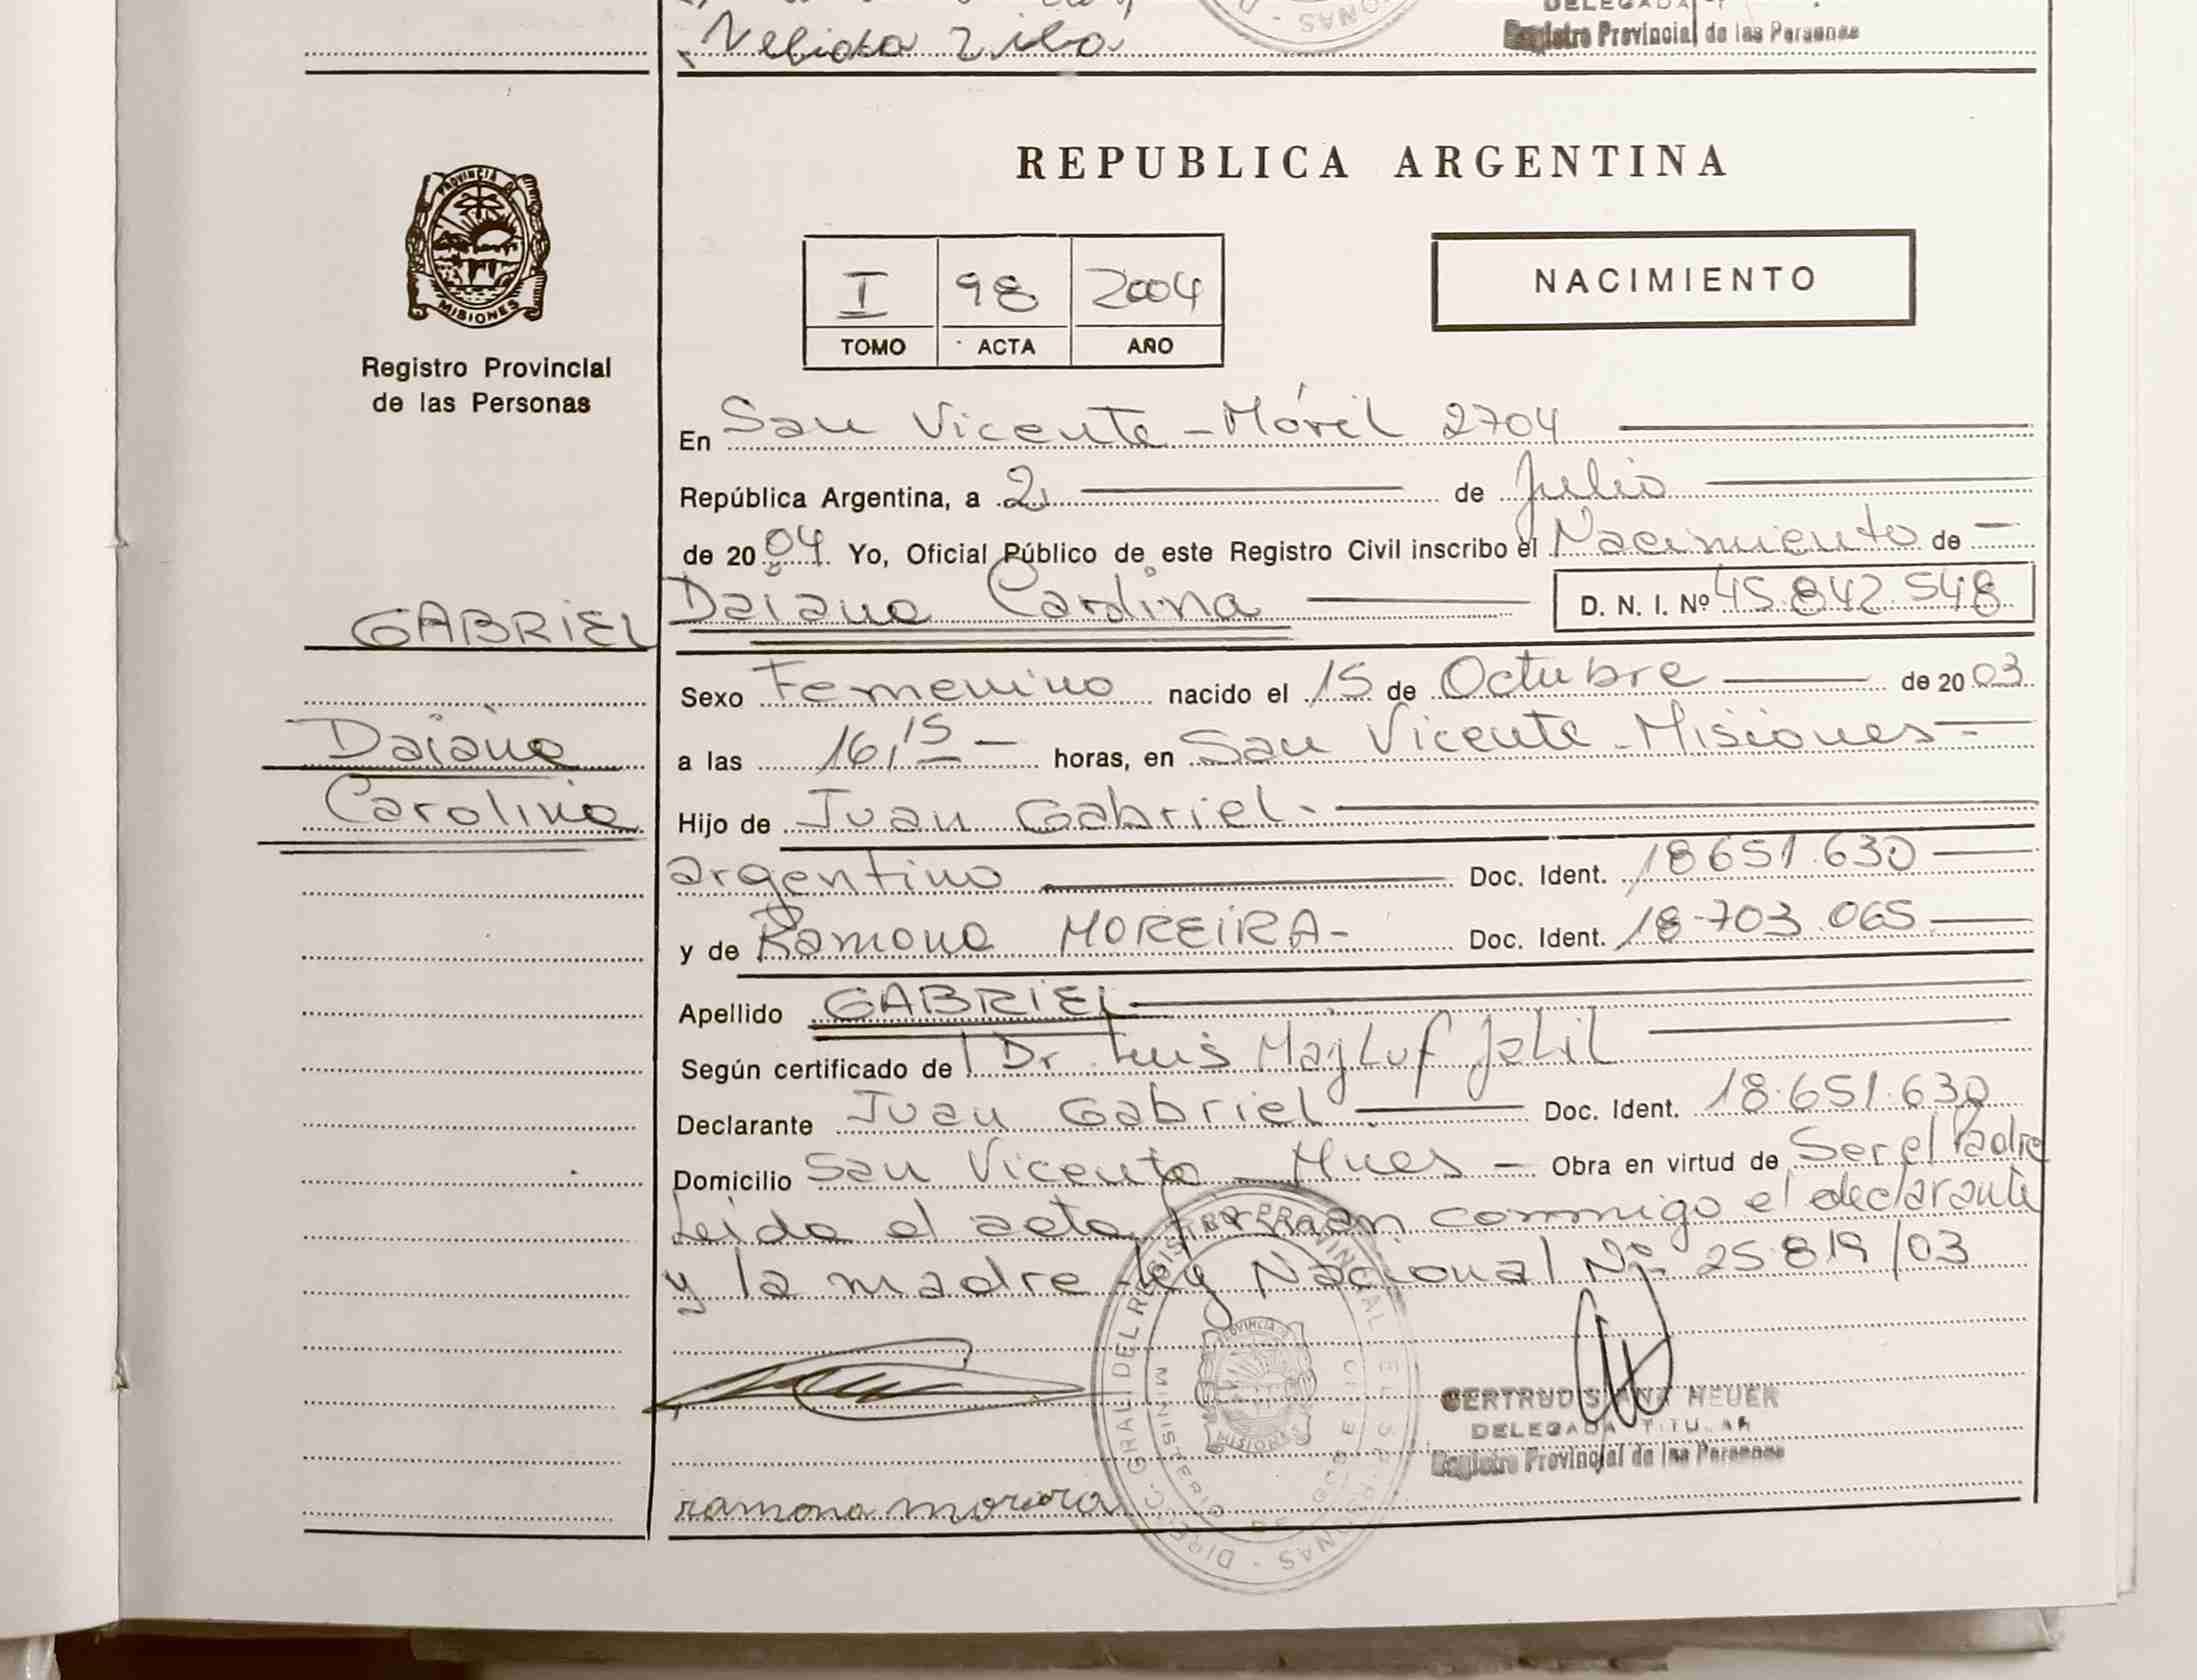 Nelida Zilo
DELEGADA
Registro Provincial de las Personas
PROVINCIA DE
MISIONES
Registro Provincial
de las Personas
REPUBLICA ARGENTINA
I 98 2004
TOMO ACTA AÑO
NACIMIENTO
En San Vicente - Móvil 2704
República Argentina, a 2 de Julio
de 2004 Yo, Oficial Público de este Registro Civil inscribo el Nacimiento de
GABRIEL
Daiana Carolina D. N. I. Nº 45.842.548
Sexo Femenino nacido el 15 de Octubre de 2003
Daiana
a las 16,15 horas, en San Vicente - Misiones
Carolina
Hijo de Juan Gabriel
argentino Doc. Ident. 18651.630
y de Ramona MOREIRA - Doc. Ident. 18.703.065
Apellido GABRIEL
Según certificado de Dr. Luis Majluf Jalil
Declarante Juan Gabriel Doc. Ident. 18.651.630
Domicilio San Vicente Mnes - Obra en virtud de Ser el Padre
Leida el acta, firman conmigo el declarante
y la madre Ley Nacional Nº 25819/03
DIREC. GRAL. DEL REGISTRO PROVINCIAL DE LAS PERSONAS
MINISTERIO DE GOBIERNO
PROVINCIA DE
MISIONES
GERTRUDIS ANA HEUER
DELEGADA TITULAR
Registro Provincial de las Personas
ramona moreira